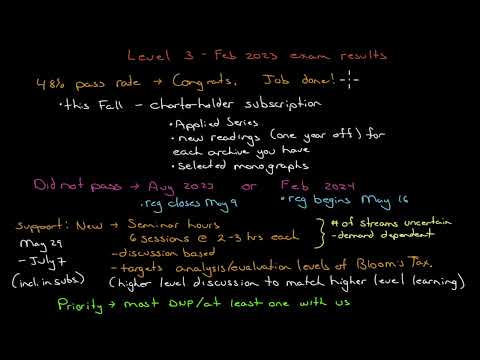 Level 3 - Feb 2023 exam results
48% pass rate → Congrats. Job done!
• this Fall - charterholder subscription
• Applied Series
• new readings (one year off) for
each archive you have
• selected monographs
Did not pass → Aug 2023 or Feb 2024
• reg closes May 9 • reg begins May 16
Support: New → Seminar hours
6 sessions @ 2-3 hrs each
# of streams uncertain
- demand dependent
May 29
- July 7
(incl. in subs.)
- discussion based
- targets analysis/evaluation levels of Bloom's Tax.
(higher level discussion to match higher level learning)
Priority → most DNP/at least one with us